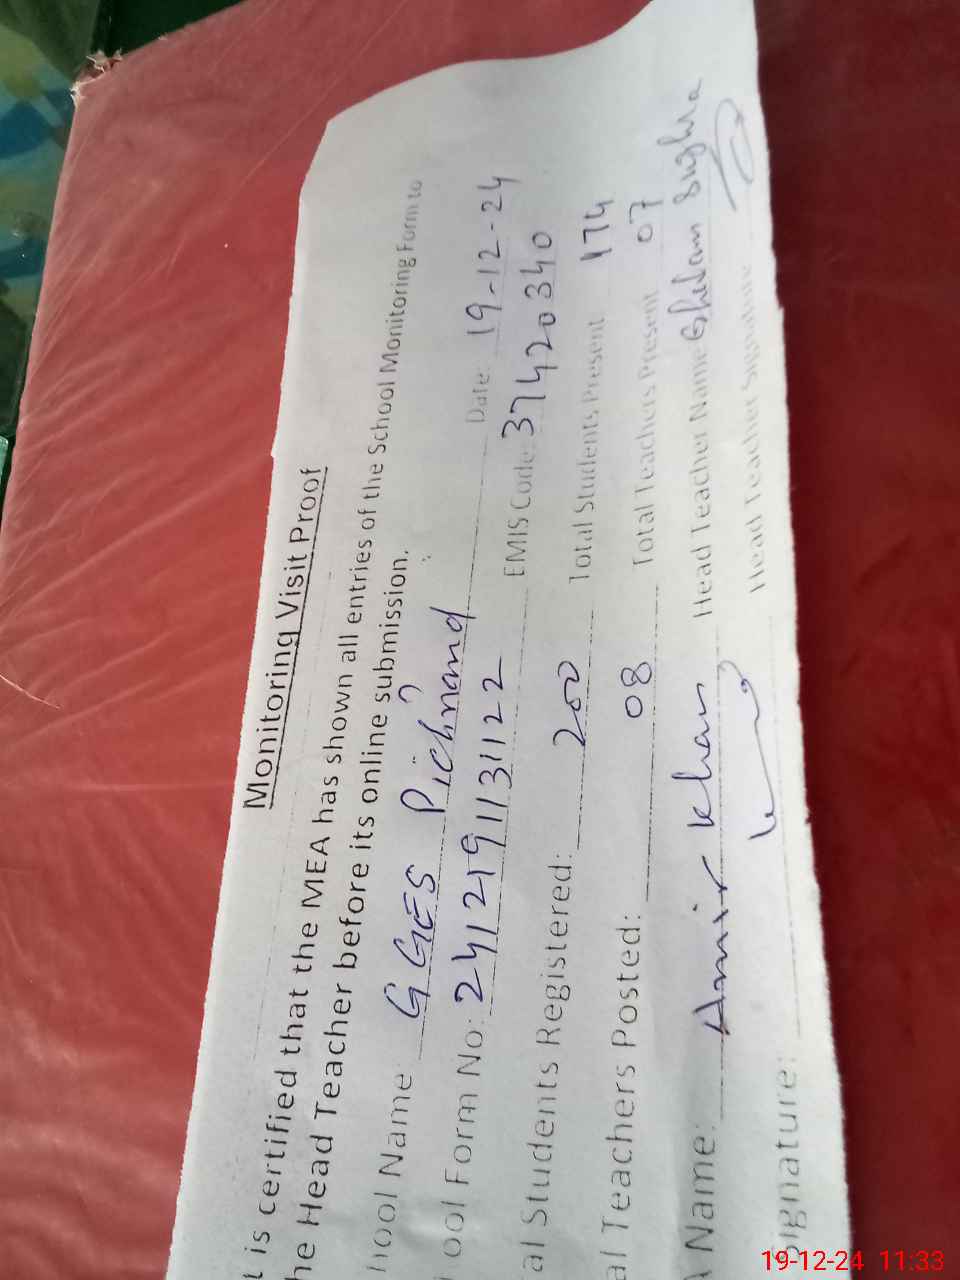 Monitoring Visit Proof
is certified that the MEA has shown all entries of the School Monitoring Form to
he Head Teacher before its online submission.
hool Name: GGES Pichnand Date: 19-12-24
ool Form No: 241219113122 EMIS Code: 37420340
al Students Registered: 200 Total Students Present 174
al Teachers Posted: 08 Total Teachers Present 07
Name: Amir Khan Head Teacher Name Ghulam Sughra
Signature: Head Teacher Signature
19-12-24 11:33